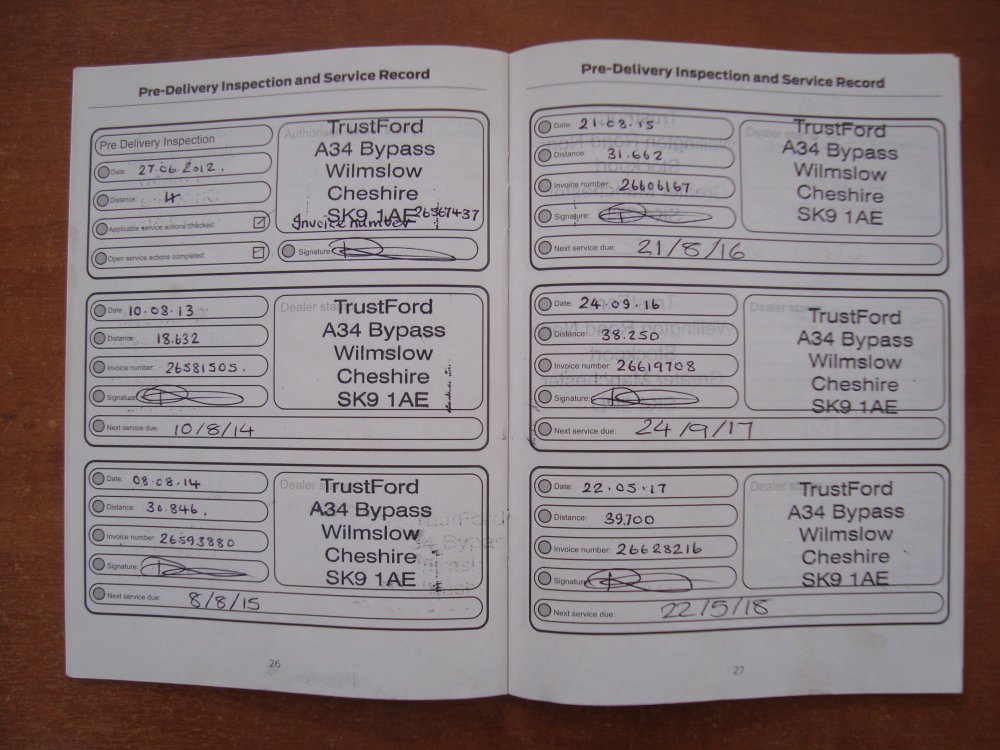 Pre-Delivery Inspection and Service Record
Pre Delivery Inspection
Date: 27.06.2012.
Distance: 4
Applicable service actions checked:
Open service actions completed:
Authoris
TrustFord
A34 Bypass
Wilmslow
Cheshire
SK9 1AE
Invoice number 26567437
Signature:
Date: 10.08.13
Distance: 18.632
Invoice number: 26581505.
Signature:
Next service due: 10/8/14
Dealer sta
TrustFord
A34 Bypass
Wilmslow
Cheshire
SK9 1AE
Date: 08.08.14
Distance: 30.846.
Invoice number: 26593880
Signature:
Next service due: 8/8/15
Dealer
TrustFord
A34 Bypass
Wilmslow
Cheshire
SK9 1AE
26
Pre-Delivery Inspection and Service Record
Date: 21.08.15
Distance: 31.662
Invoice number: 26606167
Signature:
Next service due: 21/8/16
Dealer
TrustFord
A34 Bypass
Wilmslow
Cheshire
SK9 1AE
Date: 24.09.16
Distance: 38.250
Invoice number: 26619708
Signature:
Next service due: 24/9/17
Dealer sta
TrustFord
A34 Bypass
Wilmslow
Cheshire
SK9 1AE
Date: 22.05.17
Distance: 39.700
Invoice number: 26628216
Signature:
Next service due: 22/5/18
Dealer
TrustFord
A34 Bypass
Wilmslow
Cheshire
SK9 1AE
27